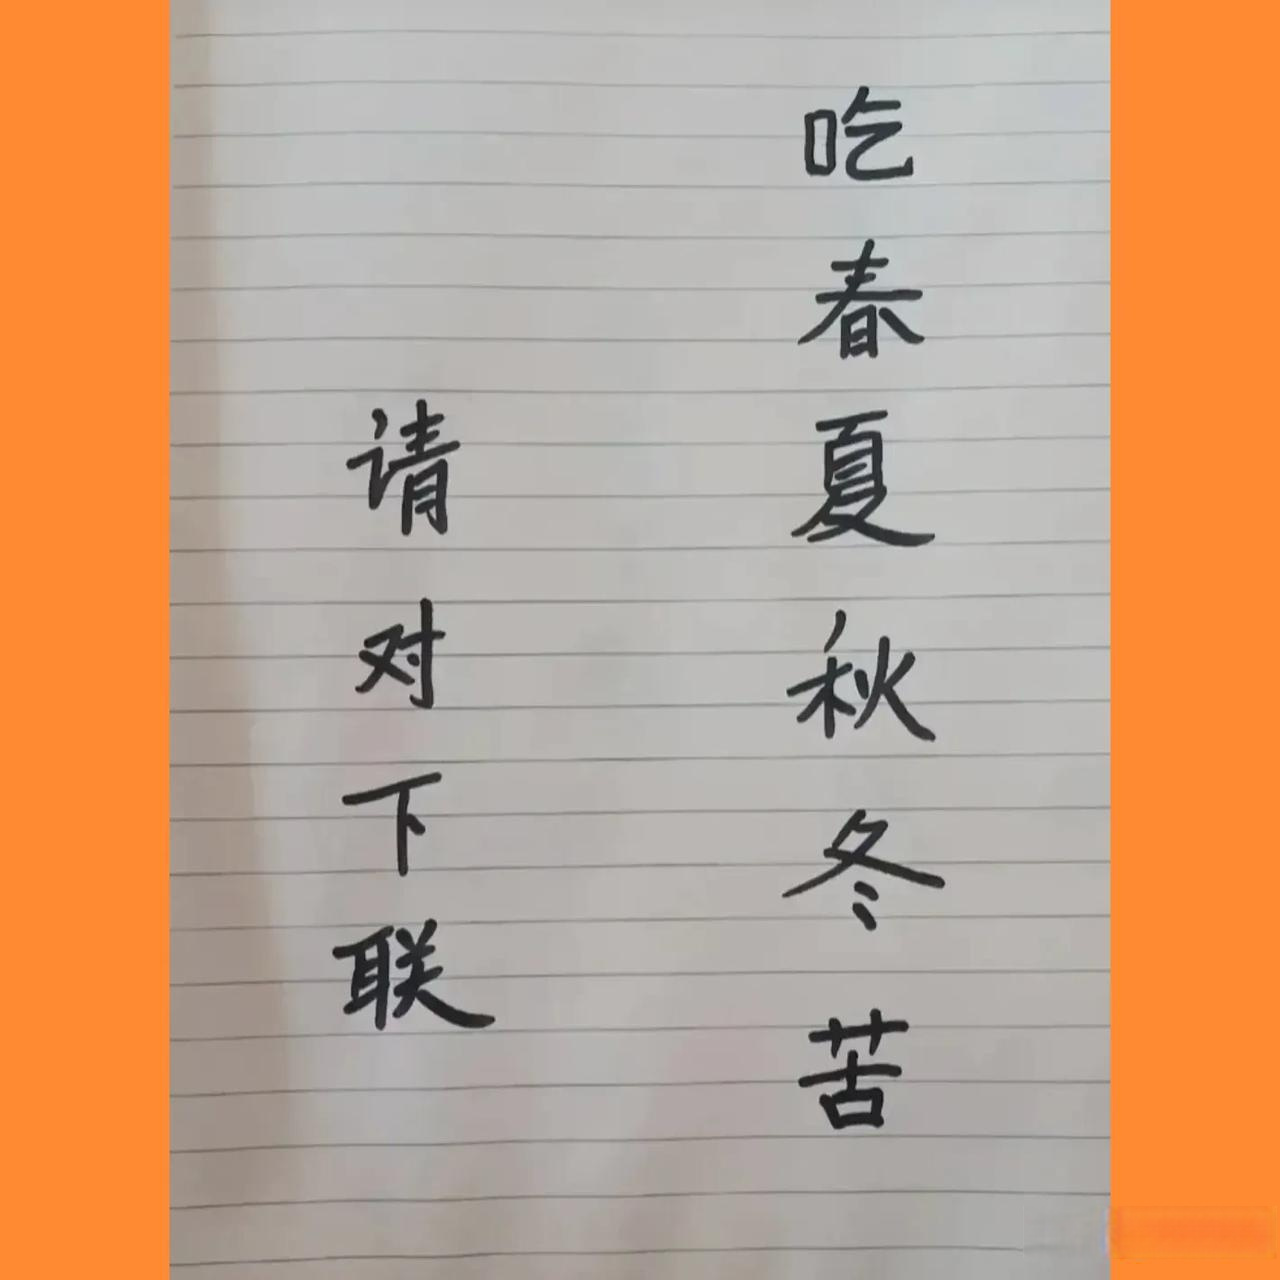 吃春夏秋冬苦
请对下联